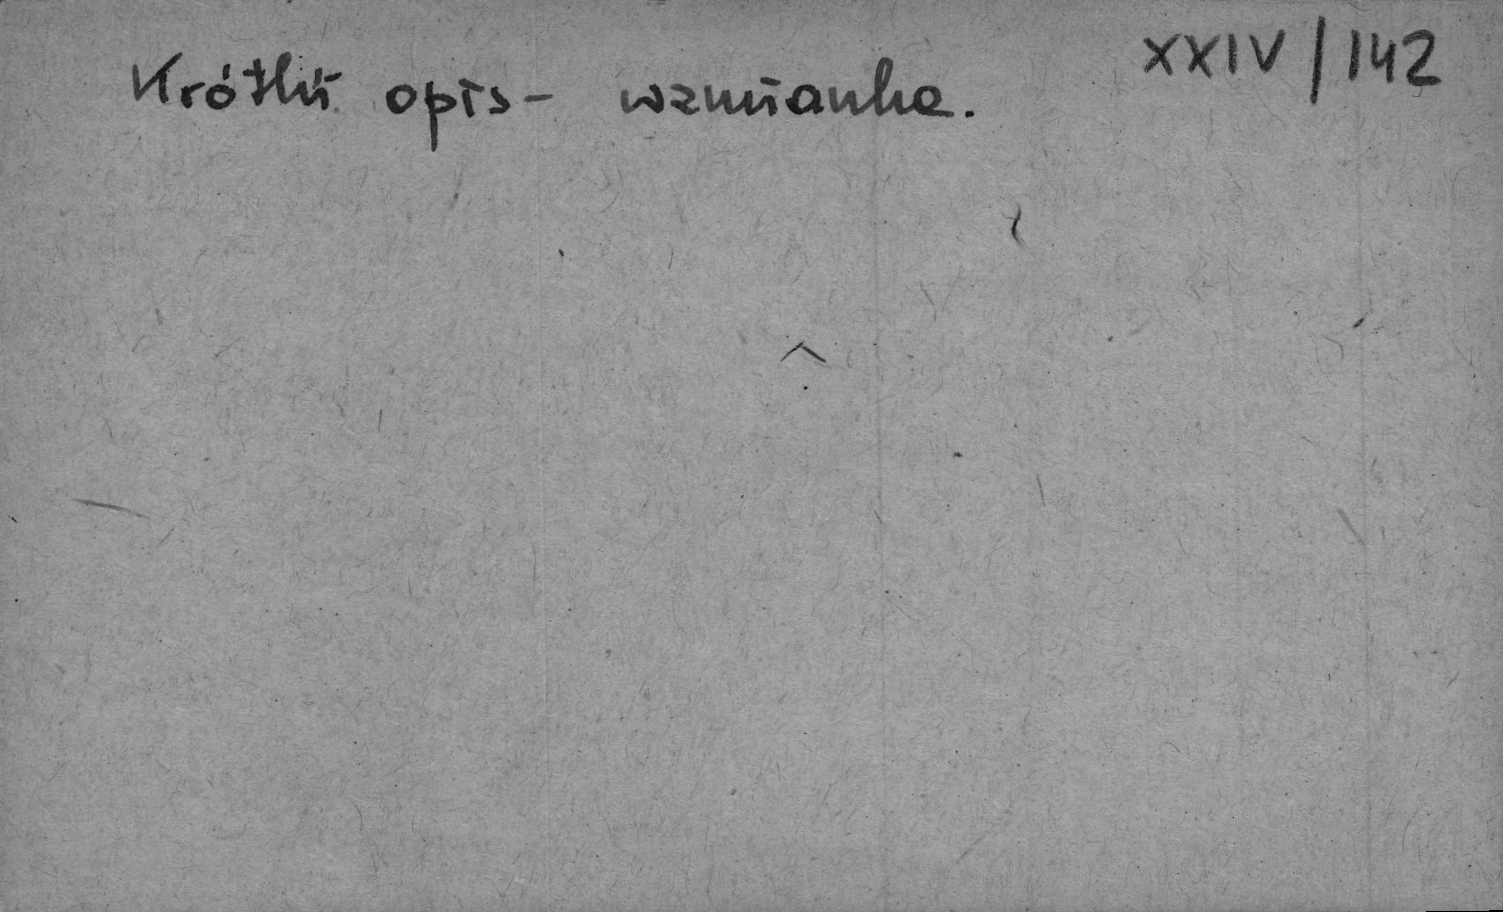 XXIV/142
Krótki opis - wzmianka.